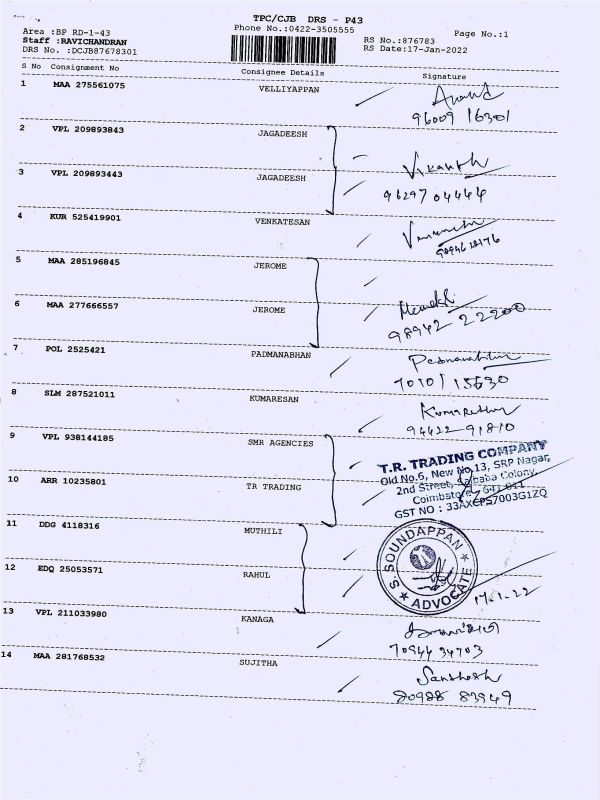 TPC/CJB DRS - P43
Area :BP RD-1-43
Phone No.:0422-3505555
Page No.:1
Staff :RAVICHANDRAN
RS No.:876783
DRS No. :DCJB87678301
RS Date:17-Jan-2022
S No Consignment No Consignee Details Signature
1 MAA 275561075 VELLIYAPPAN Anand
96009 16301
2 VPL 209893843 JAGADEESH
Vikanth
3 VPL 209893443 JAGADEESH
9629704444
4 KUR 525419901 VENKATESAN
5 MAA 285196845 JEROME
6 MAA 277666557 JEROME
98942 22200
7 POL 2525421 PADMANABHAN Padmanabhan
70101 15630
8 SLM 287521011 KUMARESAN
94422-91810
9 VPL 938144185 SMR AGENCIES
T.R. TRADING COMPANY
Old No.6, New No.13, SRP Nagar,
2nd Street, Saibaba Colony,
Coimbatore - 641 011
GST NO : 33AXCPS7003G1ZQ
10 ARR 10235801 TR TRADING
11 DDG 4118316 MUTHILI
S. SOUNDAPPAN
ADVOCATE
12 EDQ 25053571 RAHUL
17-1-22
13 VPL 211033980 KANAGA
70944 34703
14 MAA 281768532 SUJITHA Santhosh
80988 83949